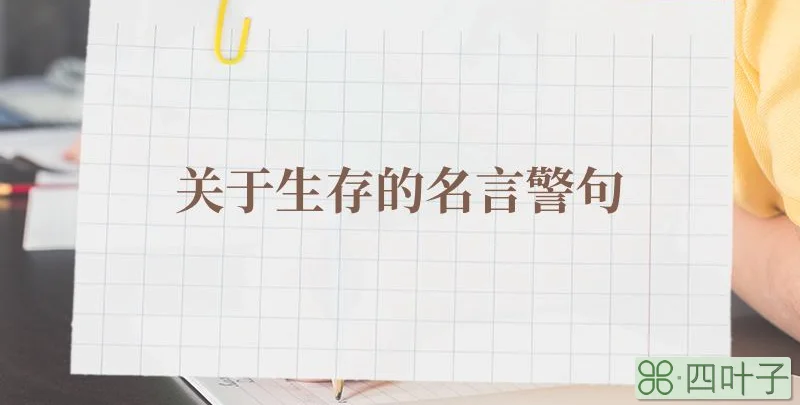 关于生存的名言警句
四叶子